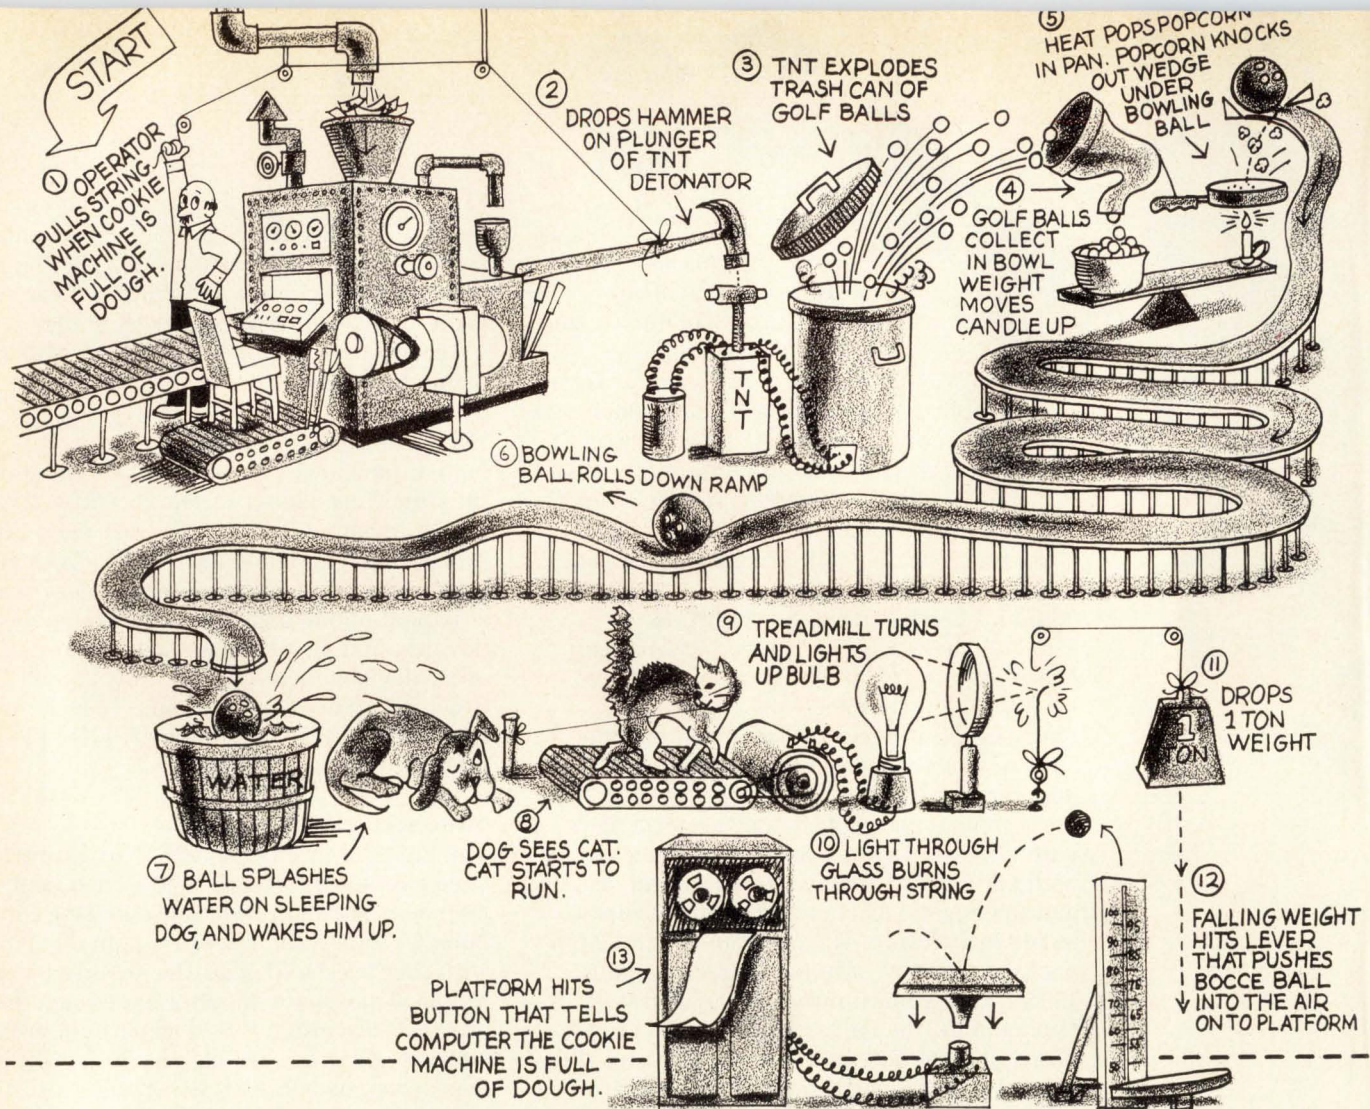 START
① OPERATOR
PULLS STRING
WHEN COOKIE
MACHINE IS
FULL OF
DOUGH.
②
DROPS HAMMER
ON PLUNGER
OF TNT
DETONATOR
③ TNT EXPLODES
TRASH CAN OF
GOLF BALLS
④
GOLF BALLS
COLLECT
IN BOWL
WEIGHT
MOVES
CANDLE UP
⑤
HEAT POPS POPCORN
IN PAN. POPCORN KNOCKS
OUT WEDGE
UNDER
BOWLING
BALL
TNT
⑥ BOWLING
BALL ROLLS DOWN RAMP
WATER
⑦ BALL SPLASHES
WATER ON SLEEPING
DOG, AND WAKES HIM UP.
⑧
DOG SEES CAT.
CAT STARTS TO
RUN.
⑨ TREADMILL TURNS
AND LIGHTS
UP BULB
⑩ LIGHT THROUGH
GLASS BURNS
THROUGH STRING
1
TON
⑪
DROPS
1 TON
WEIGHT
⑫
FALLING WEIGHT
HITS LEVER
THAT PUSHES
BOCCE BALL
INTO THE AIR
ONTO PLATFORM
100
95
90
85
80
75
70
65
⑬
PLATFORM HITS
BUTTON THAT TELLS
COMPUTER THE COOKIE
MACHINE IS FULL
OF DOUGH.